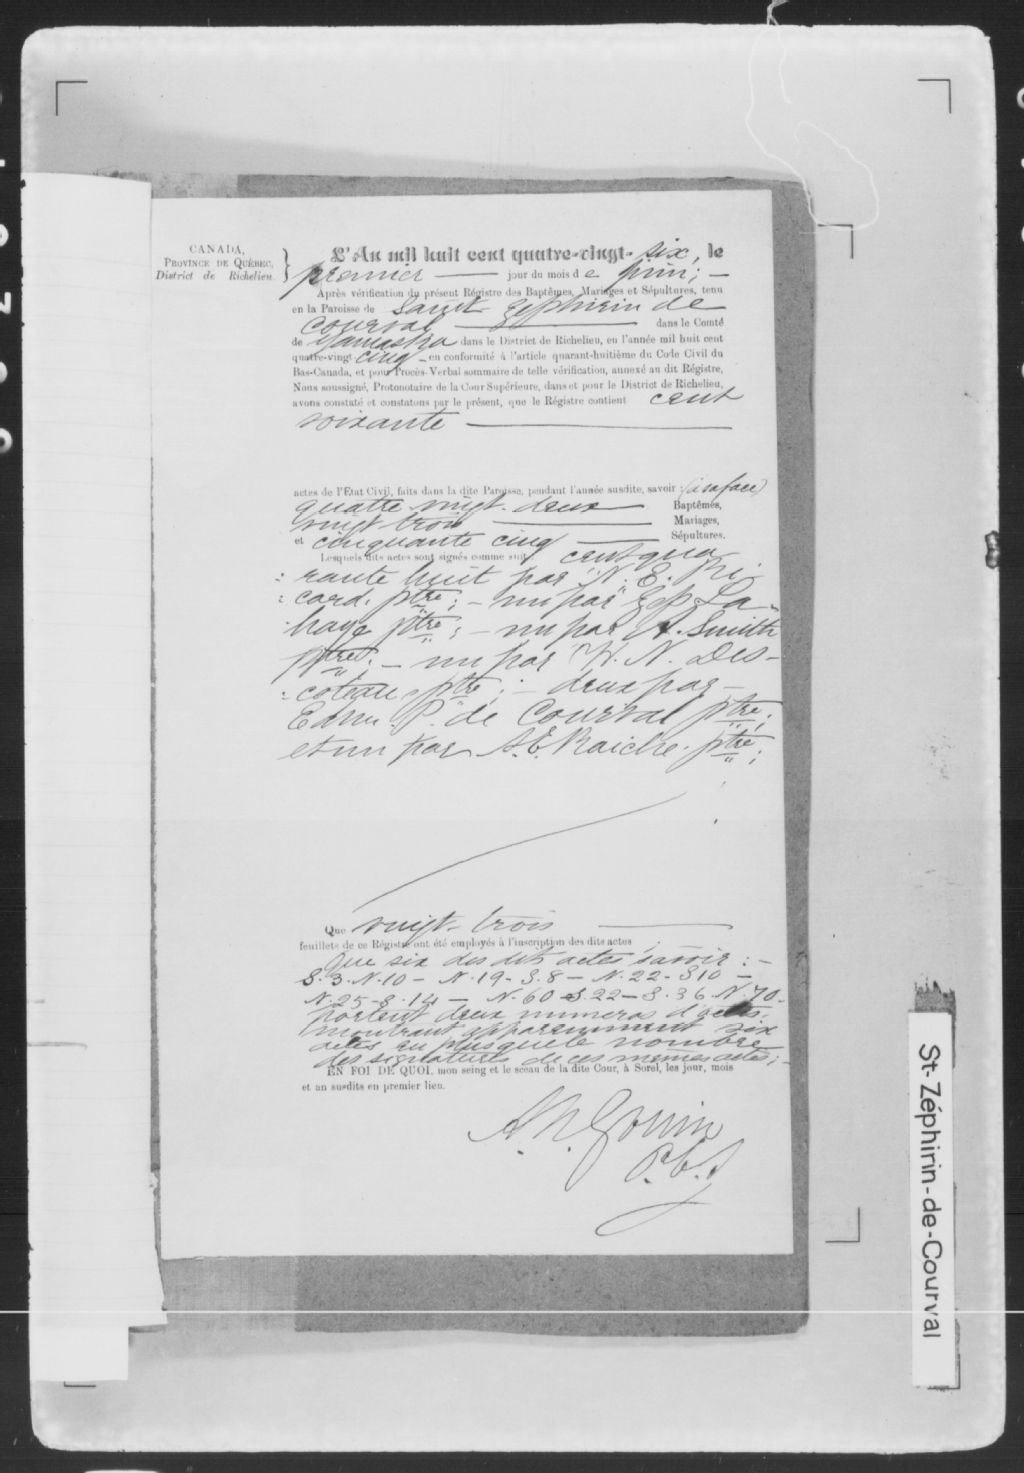 CANADA,
PROVINCE DE QUÉBEC,
District de Richelieu.
L'An mil huit cent quatre-vingt-six, le
premier jour du mois de juin;
Après vérification du présent Régistre des Baptêmes, Mariages et Sépultures, tenu
en la Paroisse de Saint Zéphirin de
Courval dans le Comté
de Yamaska dans le District de Richelieu, en l'année mil huit cent
quatre-vingt cinq en conformité à l'article quarant-huitième du Code Civil du
Bas-Canada, et pour Procès-Verbal sommaire de telle vérification, annexé au dit Régistre,
Nous soussigné, Protonotaire de la Cour Supérieure, dans et pour le District de Richelieu,
avons constaté et constatons par le présent, que le Régistre contient cent
soixante
actes de l'Etat Civil, faits dans la dite Paroisse, pendant l'année susdite, savoir : (à sa face)
quatre vingt-deux Baptêmes,
vingt-trois Mariages,
et cinquante cinq Sépultures.
Lesquels dits actes sont signés comme suit: cent qua
rante huit par N. E. Ri-
card, ptre; - un par Zép La-
haye ptre; - un par A. Smith
ptre; - un par W. N. Des-
coteau ptre; - deux par -
Edm. P. de Courval ptre;
et un par A. E. Raiche ptre;
Que vingt-trois
feuillets de ce Régistre ont été employés à l'inscription des dits actes;
Que six des dits actes savoir : -
S. 3. N. 10 - N. 19 - S. 8 - N. 22 - S 10 -
N. 25 - S. 14 - N. 60 - S. 22 - S. 36 N. 70 -
portent deux numéros d'actes,
montrant apparemment six
actes en plus que le nombre
des signatures de ces mêmes actes; -
EN FOI DE QUOI, mon seing et le sceau de la dite Cour, à Sorel, les jour, mois
et an susdits en premier lieu.
A. N. Gouin
P. C. S.
St-Zéphirin-de-Courval